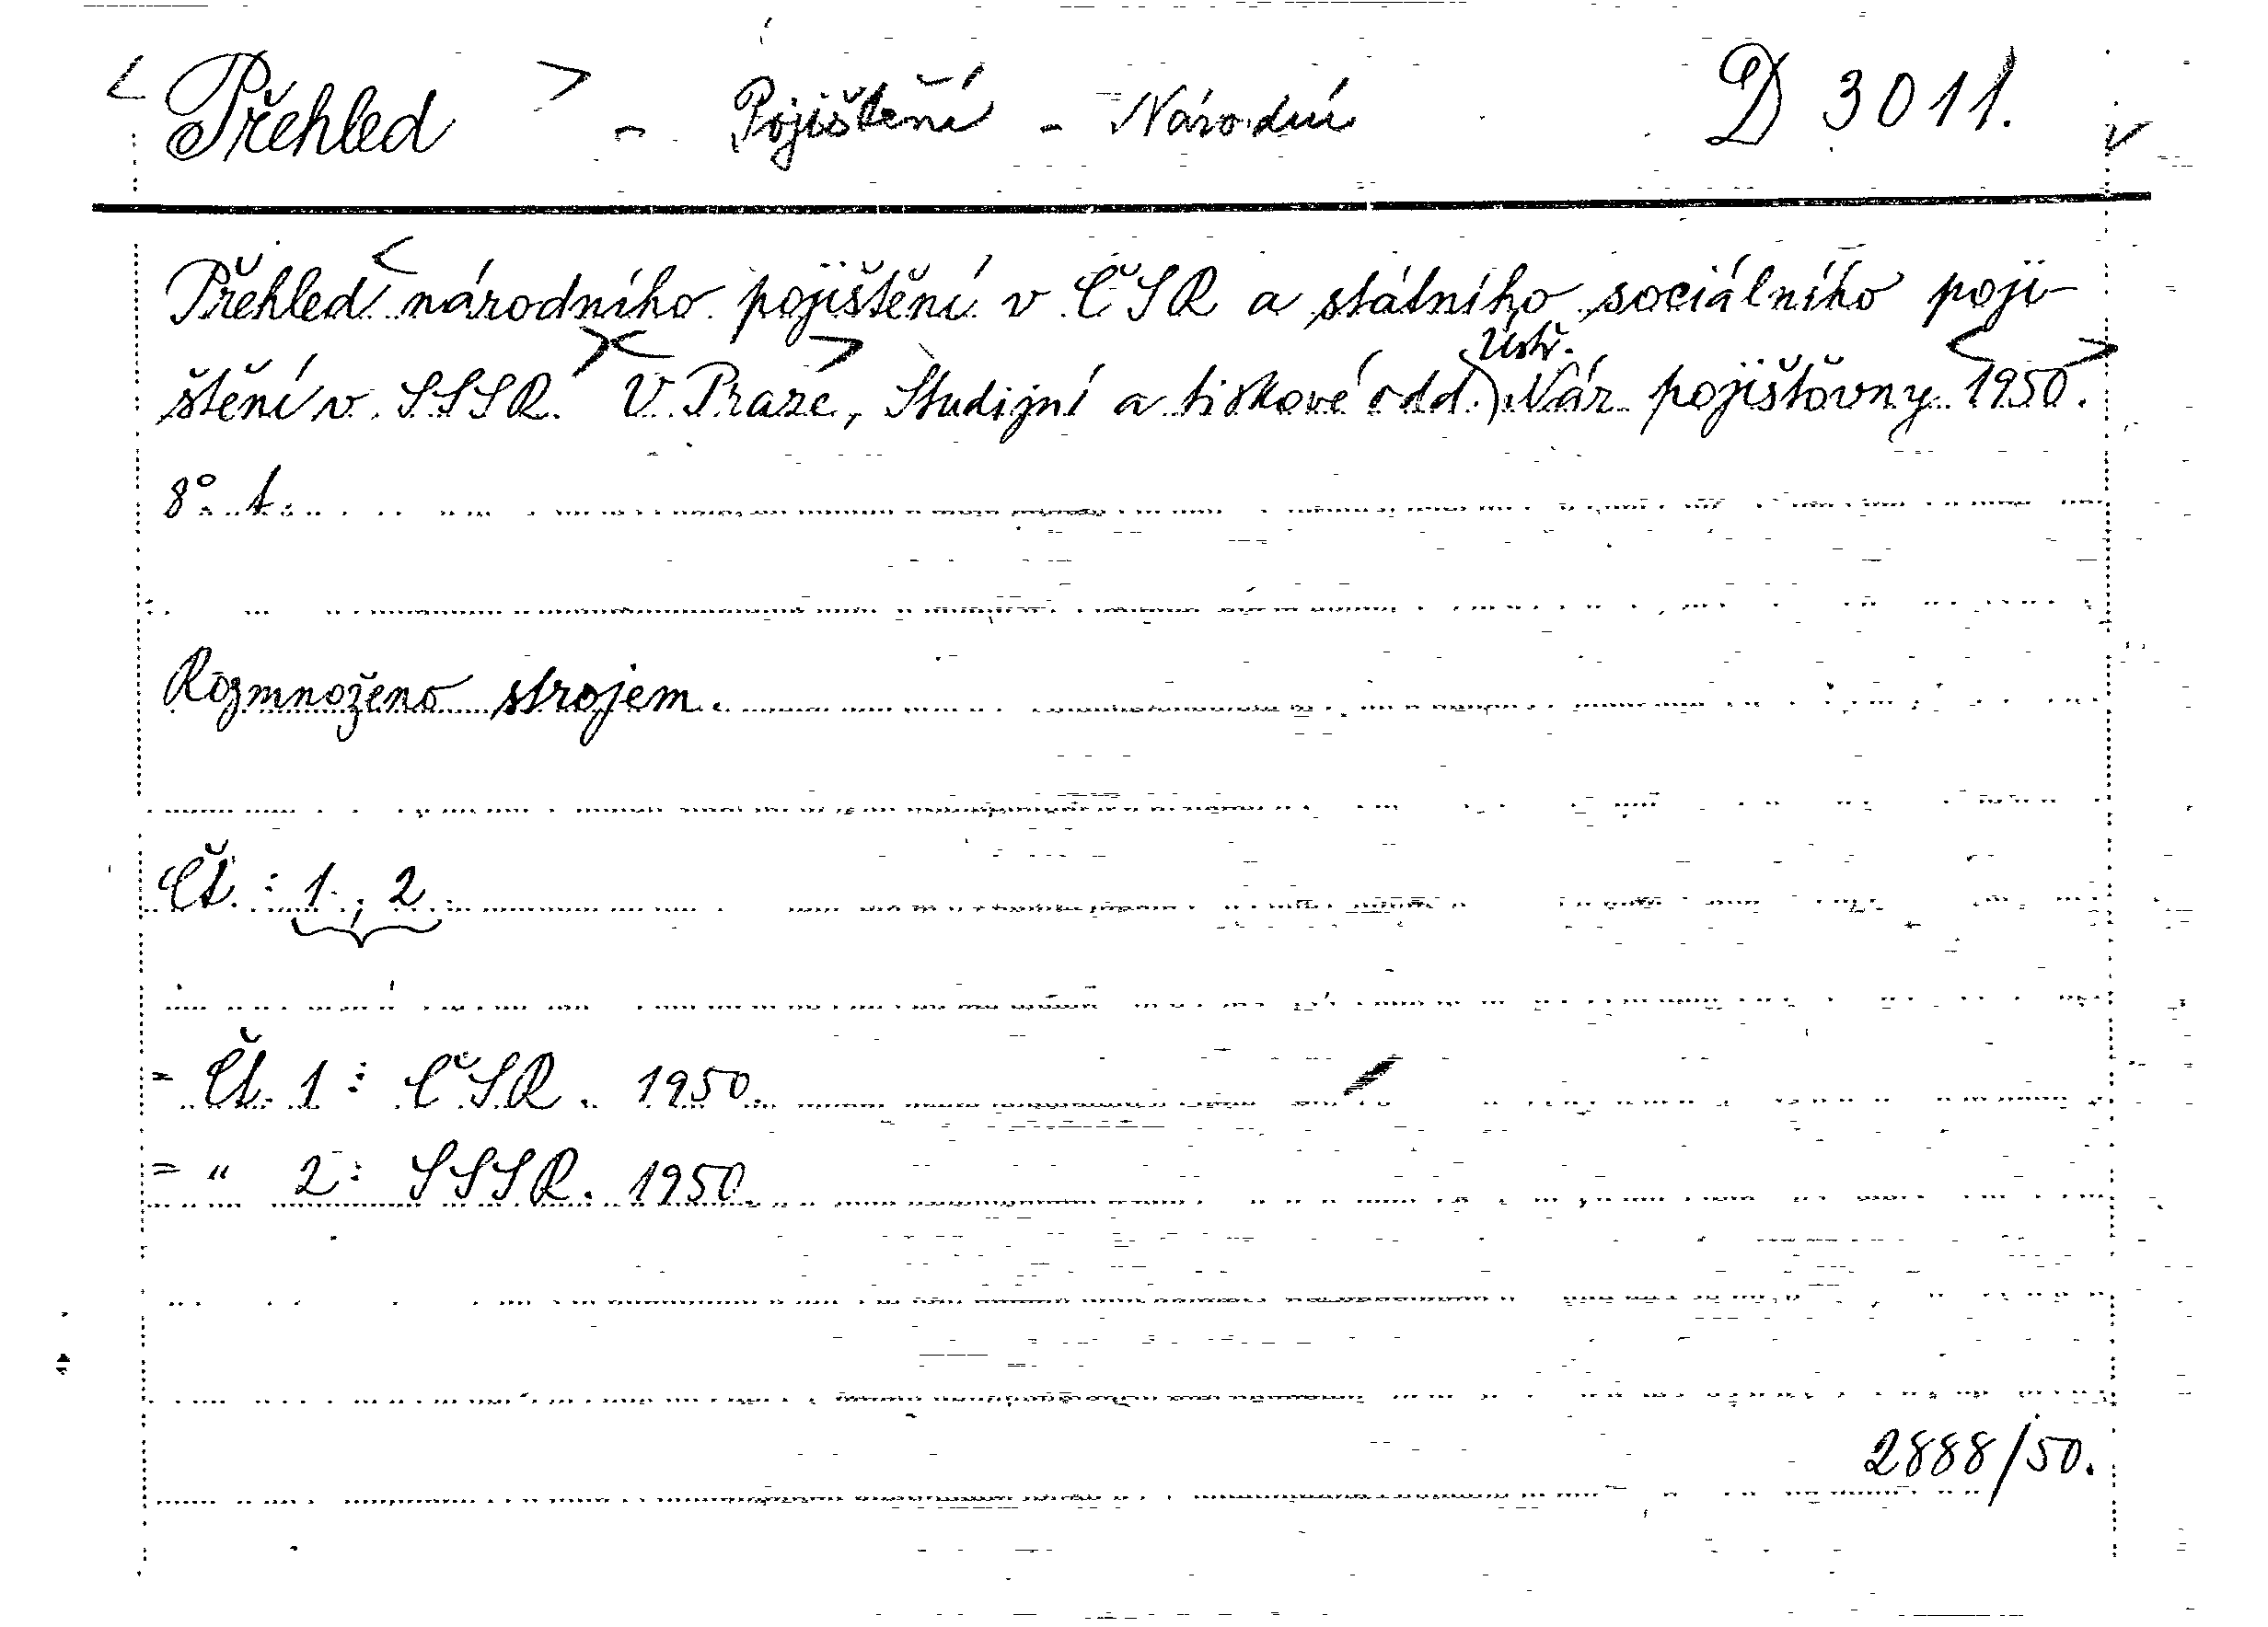 < Přehled > - Pojištění - Národní D 3011. v
Přehled < národního pojištění v ČSR a státního sociálního poji-
štění v SSSR. >< V Praze >, Studijní a tiskové odd. Ústř. Nár. pojišťovny < 1950. >
8° t.
Rozmnoženo strojem.
Čt.: 1., 2.
= Čt. 1: ČSR. 1950.
= " 2: SSSR. 1950.
2888/50.